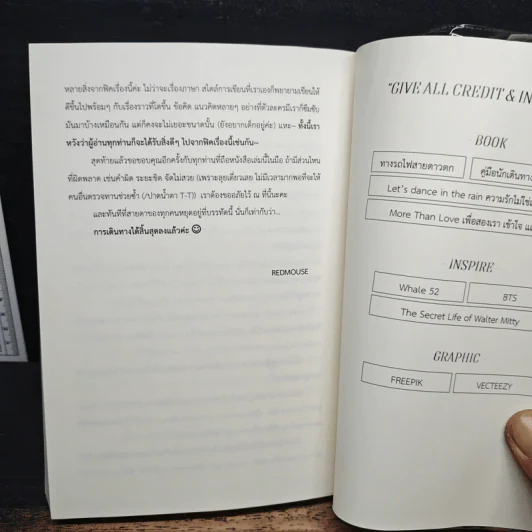 หลายสิ่งจากฟิคเรื่องนี้ค่ะ ไม่ว่าจะเรื่องภาษา สไตล์การเขียนที่เราเองก็พยายามเขียนให้
ดีขึ้นไปพร้อมๆ กับเรื่องราวที่โตขึ้น ข้อคิด แนวคิดหลายๆ อย่างที่ตัวละครมีเราก็ซึมซับ
มันมาบ้างเหมือนกัน แต่ก็คงจะไม่เยอะขนาดนั้น (ยังอยากเด็กอยู่ค่ะ) แหะ~ ทั้งนี้เรา
หวังว่าผู้อ่านทุกท่านก็จะได้รับสิ่งดีๆ ไปจากฟิคเรื่องนี้เช่นกัน~
สุดท้ายแล้วขอขอบคุณอีกครั้งกับทุกท่านที่ถือหนังสือเล่มนี้ในมือ ถ้ามีส่วนไหน
ที่ผิดพลาด เช่นคำผิด ระยะชิด จัดไม่สวย (เพราะลุยเดี่ยวเลย ไม่มีเวลามากพอที่จะให้
คนอื่นตรวจทานช่วยซ้ำ (/ปาดน้ำตา T-T)) เราต้องขออภัยไว้ ณ ที่นี้นะคะ
และทันทีที่สายตาของทุกคนหยุดอยู่ที่บรรทัดนี้ นั่นก็เท่ากับว่า...
การเดินทางได้สิ้นสุดลงแล้วค่ะ ☺
REDMOUSE
"GIVE ALL CREDIT & IN
BOOK
ทางรถไฟสายดาวตก
คู่มือนักเดินทาง
Let's dance in the rain ความรักไม่ใช่
More Than Love เพื่อสองเรา เข้าใจ แ
INSPIRE
Whale 52
BTS
The Secret Life of Walter Mitty
GRAPHIC
FREEPIK
VECTEEZY